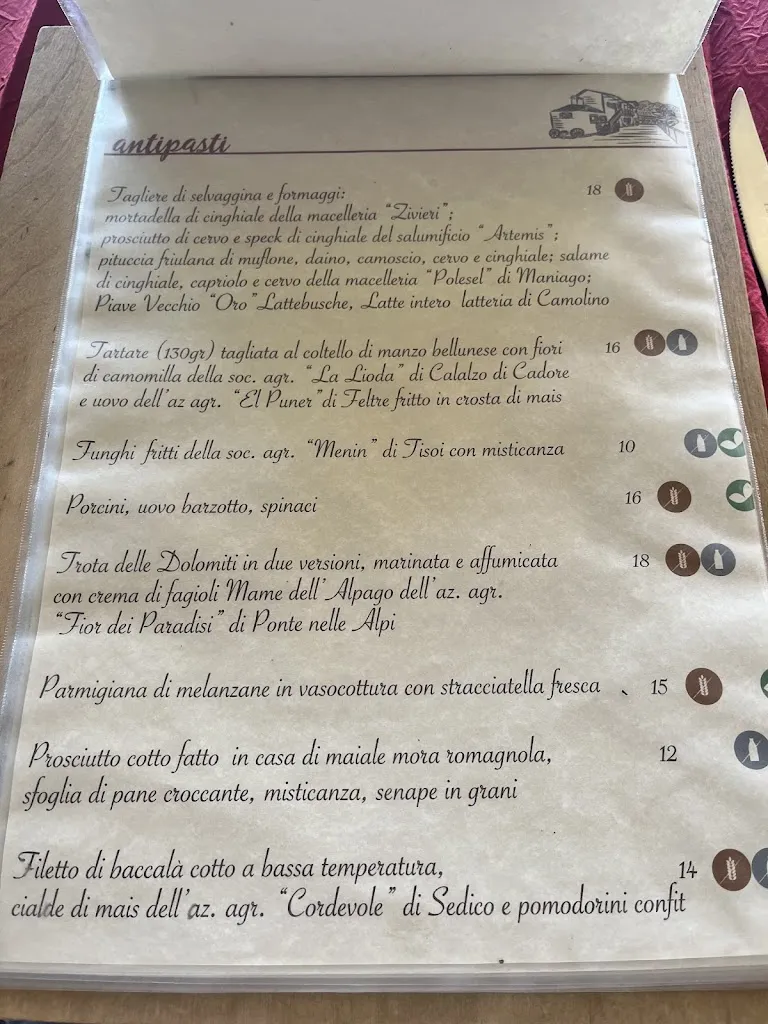 antipasti
Tagliere di selvaggina e formaggi: 18
mortadella di cinghiale della macelleria "Zivieri";
prosciutto di cervo e speck di cinghiale del salumificio "Artemis";
pituccia friulana di muflone, daino, camoscio, cervo e cinghiale; salame
di cinghiale, capriolo e cervo della macelleria "Polesel" di Maniago;
Piave Vecchio "Oro" Lattebusche, Latte intero latteria di Camolino
Tartare (130gr) tagliata al coltello di manzo bellunese con fiori 16
di camomilla della soc. agr. "La Lioda" di Calalzo di Cadore
e uovo dell'az agr. "El Puner" di Feltre fritto in crosta di mais
Funghi fritti della soc. agr. "Menin" di Tisoi con misticanza 10
Porcini, uovo barzotto, spinaci 16
Trota delle Dolomiti in due versioni, marinata e affumicata 18
con crema di fagioli Mame dell'Alpago dell'az. agr.
"Fior dei Paradisi" di Ponte nelle Alpi
Parmigiana di melanzane in vasocottura con stracciatella fresca 15
Prosciutto cotto fatto in casa di maiale mora romagnola, 12
sfoglia di pane croccante, misticanza, senape in grani
Filetto di baccalà cotto a bassa temperatura, 14
cialde di mais dell'az. agr. "Cordevole" di Sedico e pomodorini confit